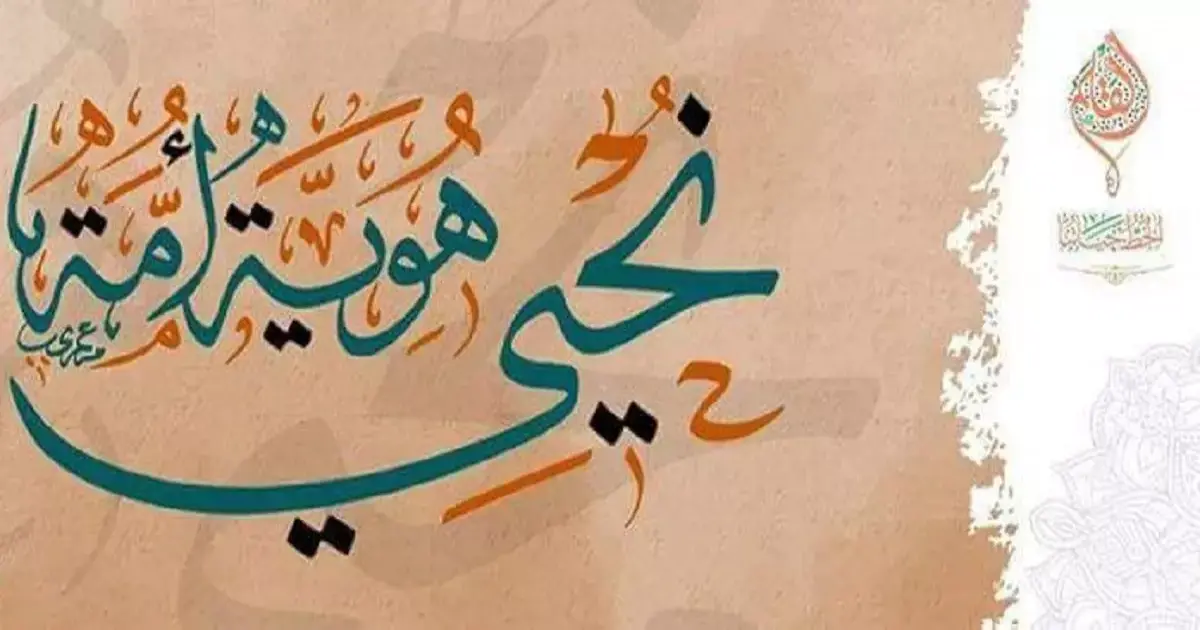 نُحْيِي هُوِيَّةَ أُمَّة